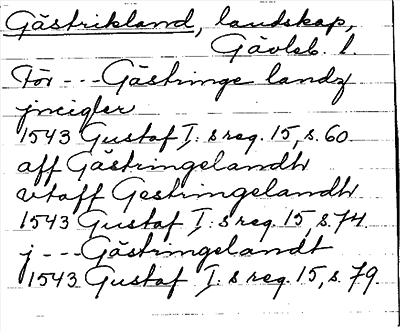 Gästrikland, landskap,
Gävleb. l.
För --- Gästringe landz
jncigler
1543 Gustaf I:s reg. 15, s. 60.
aff Gästringelandh
vtaff Gestringelandh
1543 Gustaf I:s reg. 15, s. 74.
j --- Gästringelandt
1543 Gustaf I:s reg. 15, s. 79